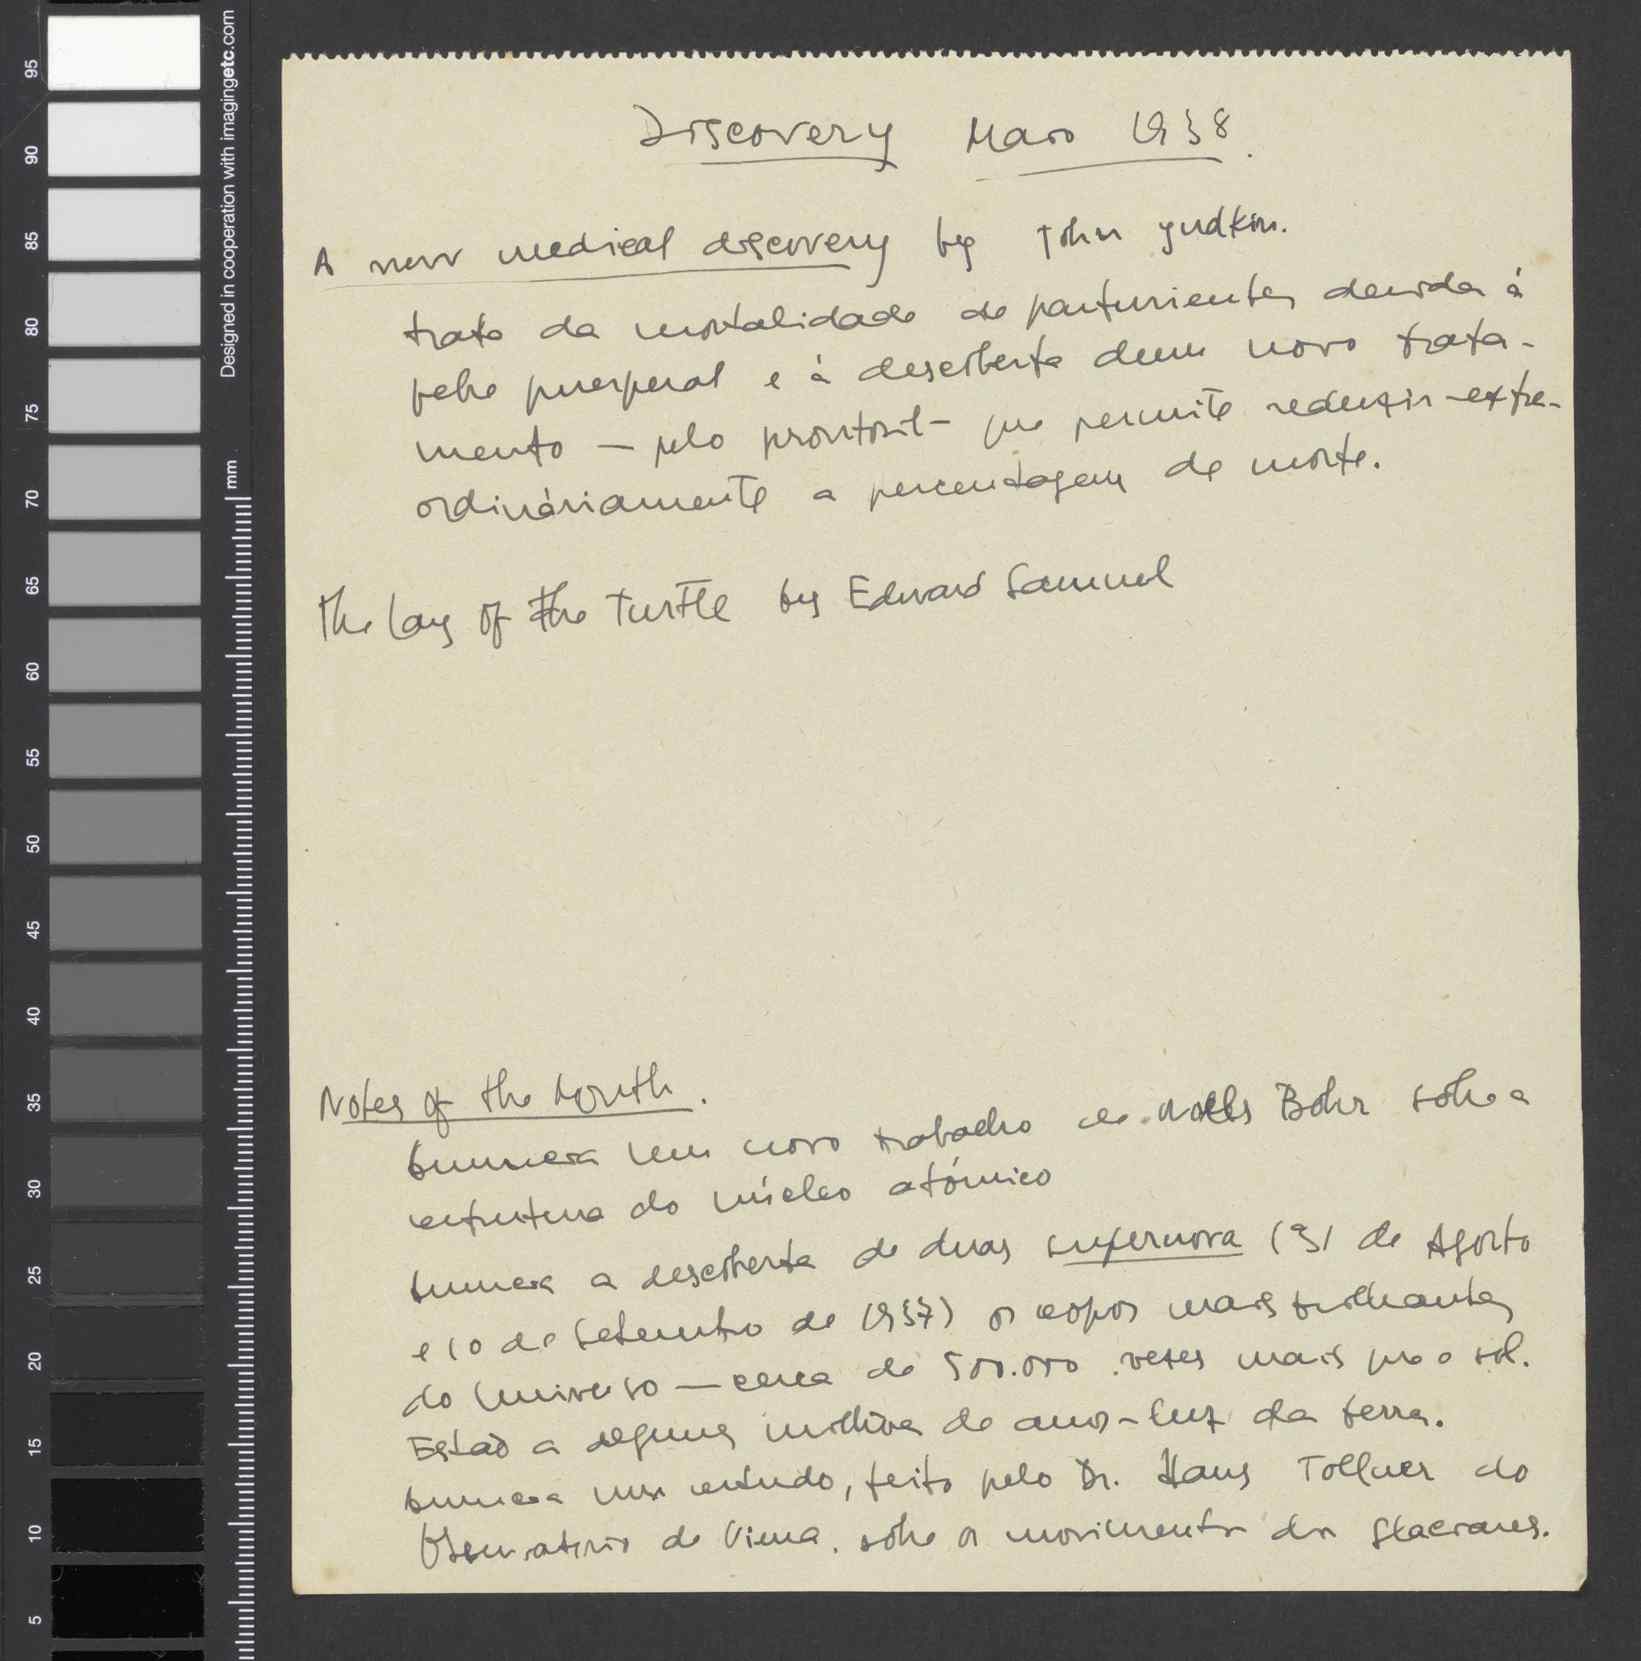 Discovery Maio 1938.
A new medical discovery by John Yudkin.
trata da mortalidade de parturientes devida à
febre puerperal e à descoberta dum novo trata-
mento — pelo prontosil — que permite reduzir extra-
ordináriamente a percentagem de morte.
The lay of the turtle by Edward Samuel
Notes of the Month.
Enumera um novo trabalho de Niels Bohr sobre a
estrutura do núcleo atómico
Enumera a descoberta de duas supernova (31 de Agosto
e 10 de Setembro de 1937) os corpos mais brilhantes
do Universo — cerca de 500.000 vezes mais que o sol.
Estão a alguns milhões de anos-luz da terra.
Enumera um estudo, feito pelo Dr. Hans Tollner do
Observatório de Viena, sobre os movimentos dos glaciares.
Designed in cooperation with imagingetc.com
mm
95
90
85
80
75
70
65
60
55
50
45
40
35
30
25
20
15
10
5